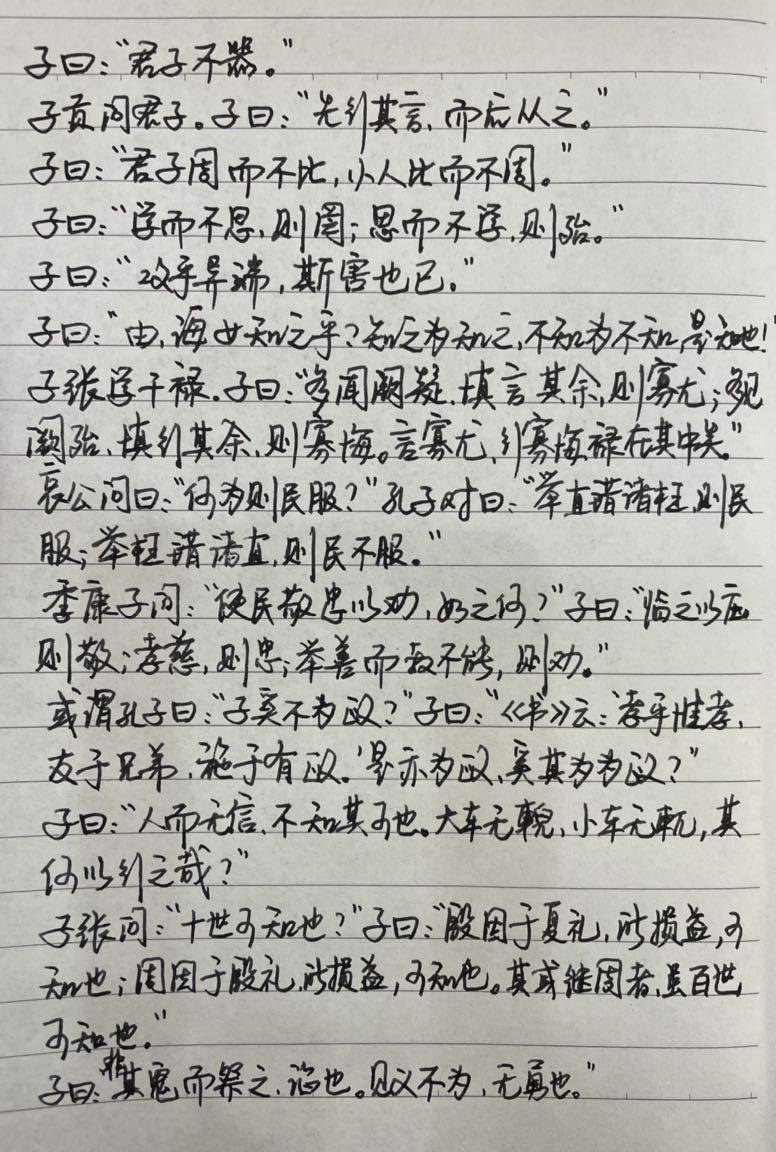 子曰：“君子不器。”
子贡问君子。子曰：“先行其言，而后从之。”
子曰：“君子周而不比，小人比而不周。”
子曰：“学而不思，则罔；思而不学，则殆。”
子曰：“攻乎异端，斯害也已。”
子曰：“由，诲女知之乎？知之为知之，不知为不知，是知也！”
子张学干禄。子曰：“多闻阙疑，填言其余，则寡尤；多见
阙殆，填行其余，则寡悔。言寡尤，行寡悔，禄在其中矣。”
哀公问曰：“何为则民服？”孔子对曰：“举直错诸枉，则民
服；举枉错诸直，则民不服。”
季康子问：“使民敬忠以劝，如之何？”子曰：“临之以庄，
则敬；孝慈，则忠；举善而教不能，则劝。”
或谓孔子曰：“子奚不为政？”子曰：“《书》云：‘孝乎惟孝，
友于兄弟，施于有政。’是亦为政，奚其为为政？”
子曰：“人而无信，不知其可也。大车无輗，小车无軏，其
何以行之哉？”
子张问：“十世可知也？”子曰：“殷因于夏礼，所损益，可
知也；周因于殷礼，所损益，可知也。其或继周者，虽百世，
可知也。”
子曰：“非其鬼而祭之，谄也。见义不为，无勇也。”